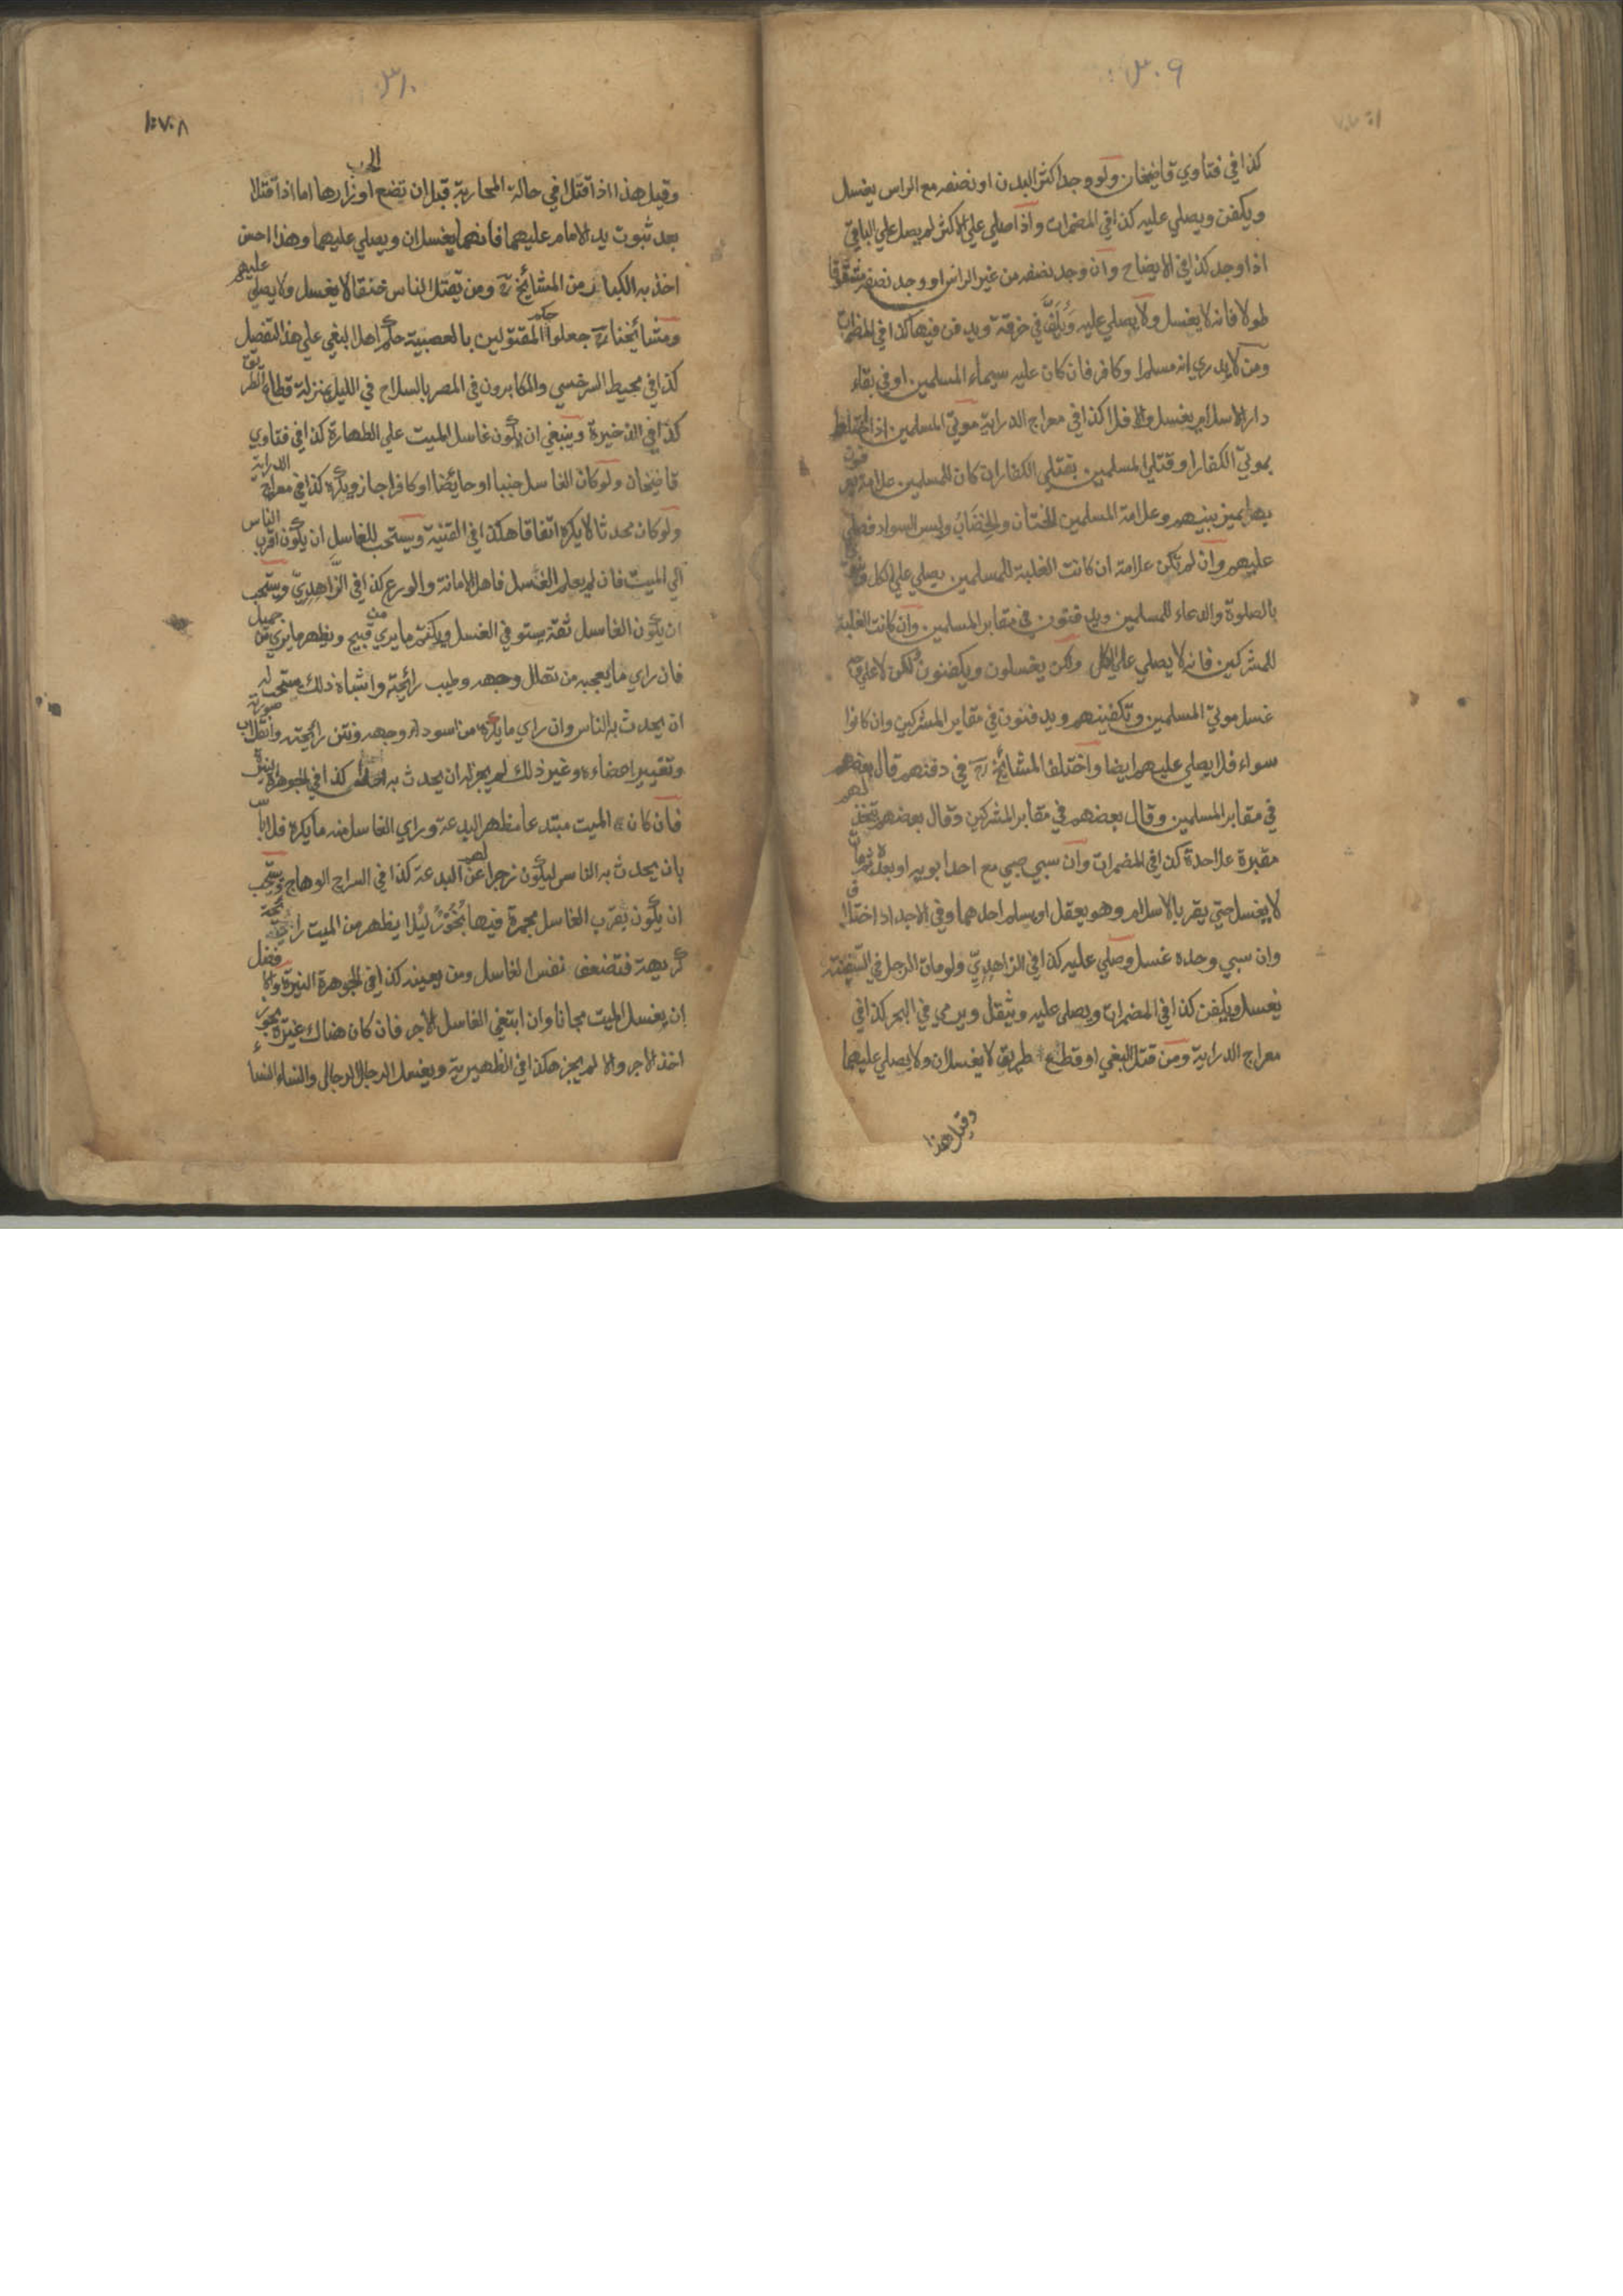 ٣٠٩
كذا في فتاوي قاضيخان ولو وجد اكثر البدن او نصفه مع الراس يغسل
ويكفن ويصلي عليه كذا في المضمرات واذا صلي علي الاكثر لم يصل علي الباقي
اذا وجد كذا في الايضاح وان وجد نصفه من غير الراس او وجد نصفه مشقوقا
طولا فانه لا يغسل ولا يصلي عليه ويلف في خرقة ويدفن فيها كذا في المضمرات
ومن لا يدري انه مسلم او كافر فان كان عليه سيماء المسلمين او في بقاء
دار الاسلام يغسل والا فلا كذا في معراج الدراية موتي المسلمين اذا اختلط
بموتي الكفار او قتلي المسلمين بقتلي الكفار ان كان للمسلمين علامة يعرفون
بها يميز بينهم وعلامة المسلمين الختان والخضاب ولبس السواد فصلي
عليهم وان لم تكن علامة ان كانت الغلبة للمسلمين يصلي علي الكل
بالصلوة والدعاء للمسلمين ويدفنون في مقابر المسلمين وان كانت الغلبة
للمشركين فانه لا يصلي علي الكل ولكن يغسلون ويكفنون ولكن لا علي وجه
غسل موتي المسلمين وتكفينهم ويدفنون في مقابر المشركين وان كانوا
سواء فلا يصلي عليهم ايضا واختلف المشائخ رح في دفنهم قال بعضهم
في مقابر المسلمين وقال بعضهم في مقابر المشركين وقال بعضهم تتخذ لهم
مقبرة علاحدة كذا في المضمرات وان سبي صبي مع احد ابويه او بعده زمان
لا يغسل حتي يقر بالاسلام وهو يعقل او يسلم احدهما وفي الاجداد اختلاف
وان سبي وحده غسل وصلي عليه كذا في الزاهدي ولو مات الرجل في السفينة
يغسل ويكفن كذا في المضمرات ويصلي عليه ويثقل ويرمي في البحر كذا في
معراج الدراية ومن قتل البغي او قطع طريق لا يغسلان ولا يصلي عليهما
وقيل هذا
٣١٠
١٠٧٠٨
وقيل هذا اذا قتلا في حالة المحاربة قبل ان تضع الحرب اوزارها اما اذا قتلا
بعد ثبوت يد الامام عليهما فانهما يغسلان ويصلي عليهما وهذا احسن
اخذ به الكبار من المشائخ رح ومن يقتل الناس خنقا لا يغسل ولا يصلي عليهم
ومشائخنا رح جعلوا المقتولين بالعصبية حكم اهل البغي علي هذا التفصل
كذا في محيط السرخسي والمكابرون في المصر بالسلاح في الليل بمنزلة قطاع الطريق
كذا في الذخيرة وينبغي ان يكون غاسل الميت علي الطهارة كذا في فتاوي
قاضيخان ولو كان الغاسل جنبا او حائضا او كافرا جاز ويكره كذا في معراج الدراية
ولو كان محدثا لا يكره اتفاقا هكذا في القنية ويستحب للغاسل ان يكون اقرب الناس
الي الميت فان لم يعلم الغسل فاهل الامانة والورع كذا في الزاهدي ويستحب
ان يكون الغاسل ثقة يستوفي الغسل ويكتم ما يري من قبيح ويظهر ما يري من جميل
فان راي ما يعجبه من تهلل وجهه وطيب رائحته واشباه ذلك يستحب له
ان يحدث به الناس وان راي ما يكره من اسوداد وجهه ونتن رائحته وانقلاب صورته
وتغيير اعضاءه وغير ذلك لم يجز له ان يحدث به احدا كذا في الجوهرة النيرة
فان كان الميت مبتدعا مظهر البدعة وراي الغاسل منه ما يكره فلا باس
بان يحدث به الناس ليكون زجرا لهم عن البدعة كذا في السراج الوهاج ويستحب
ان يكون يقرب الغاسل مجمرة فيها بخور ليلا يظهر من الميت رائحة
كريهة فتضعف نفس الغاسل ومن يعينه كذا في الجوهرة النيرة والافضل
ان يغسل الميت مجانا وان ابتغي الغاسل الاجر فان كان هناك غيره يجوز
اخذ الاجر والا لم يجز هكذا في الظهيرية ويغسل الرجال الرجال والنساء النساء